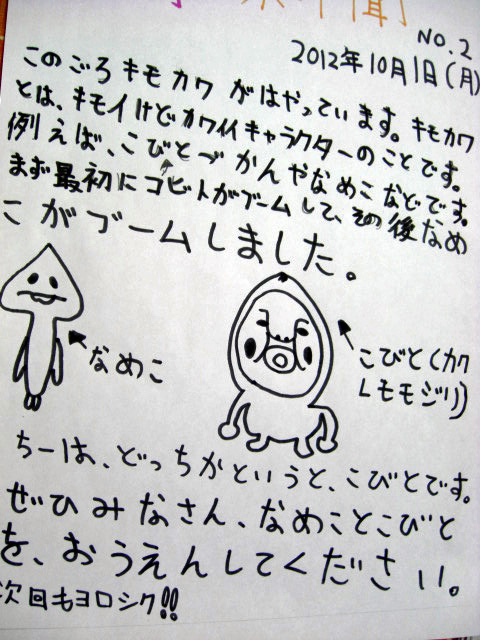 新聞
NO.2
2012年10月1日(月)
このごろキモカワがはやっています。キモカワ
とは、キモイけどカワイイキャラクターのことです。
例えば、こびとづかんやなめこなどです。
まず最初にコビトがブームして、その後なめ
こがブームしました。
なめこ
こびと(カク
レモモジリ)
ちーは、どっちかというと、こびとです。
ぜひみなさん、なめことこびと
を、おうえんしてください。
次回もヨロシク!!